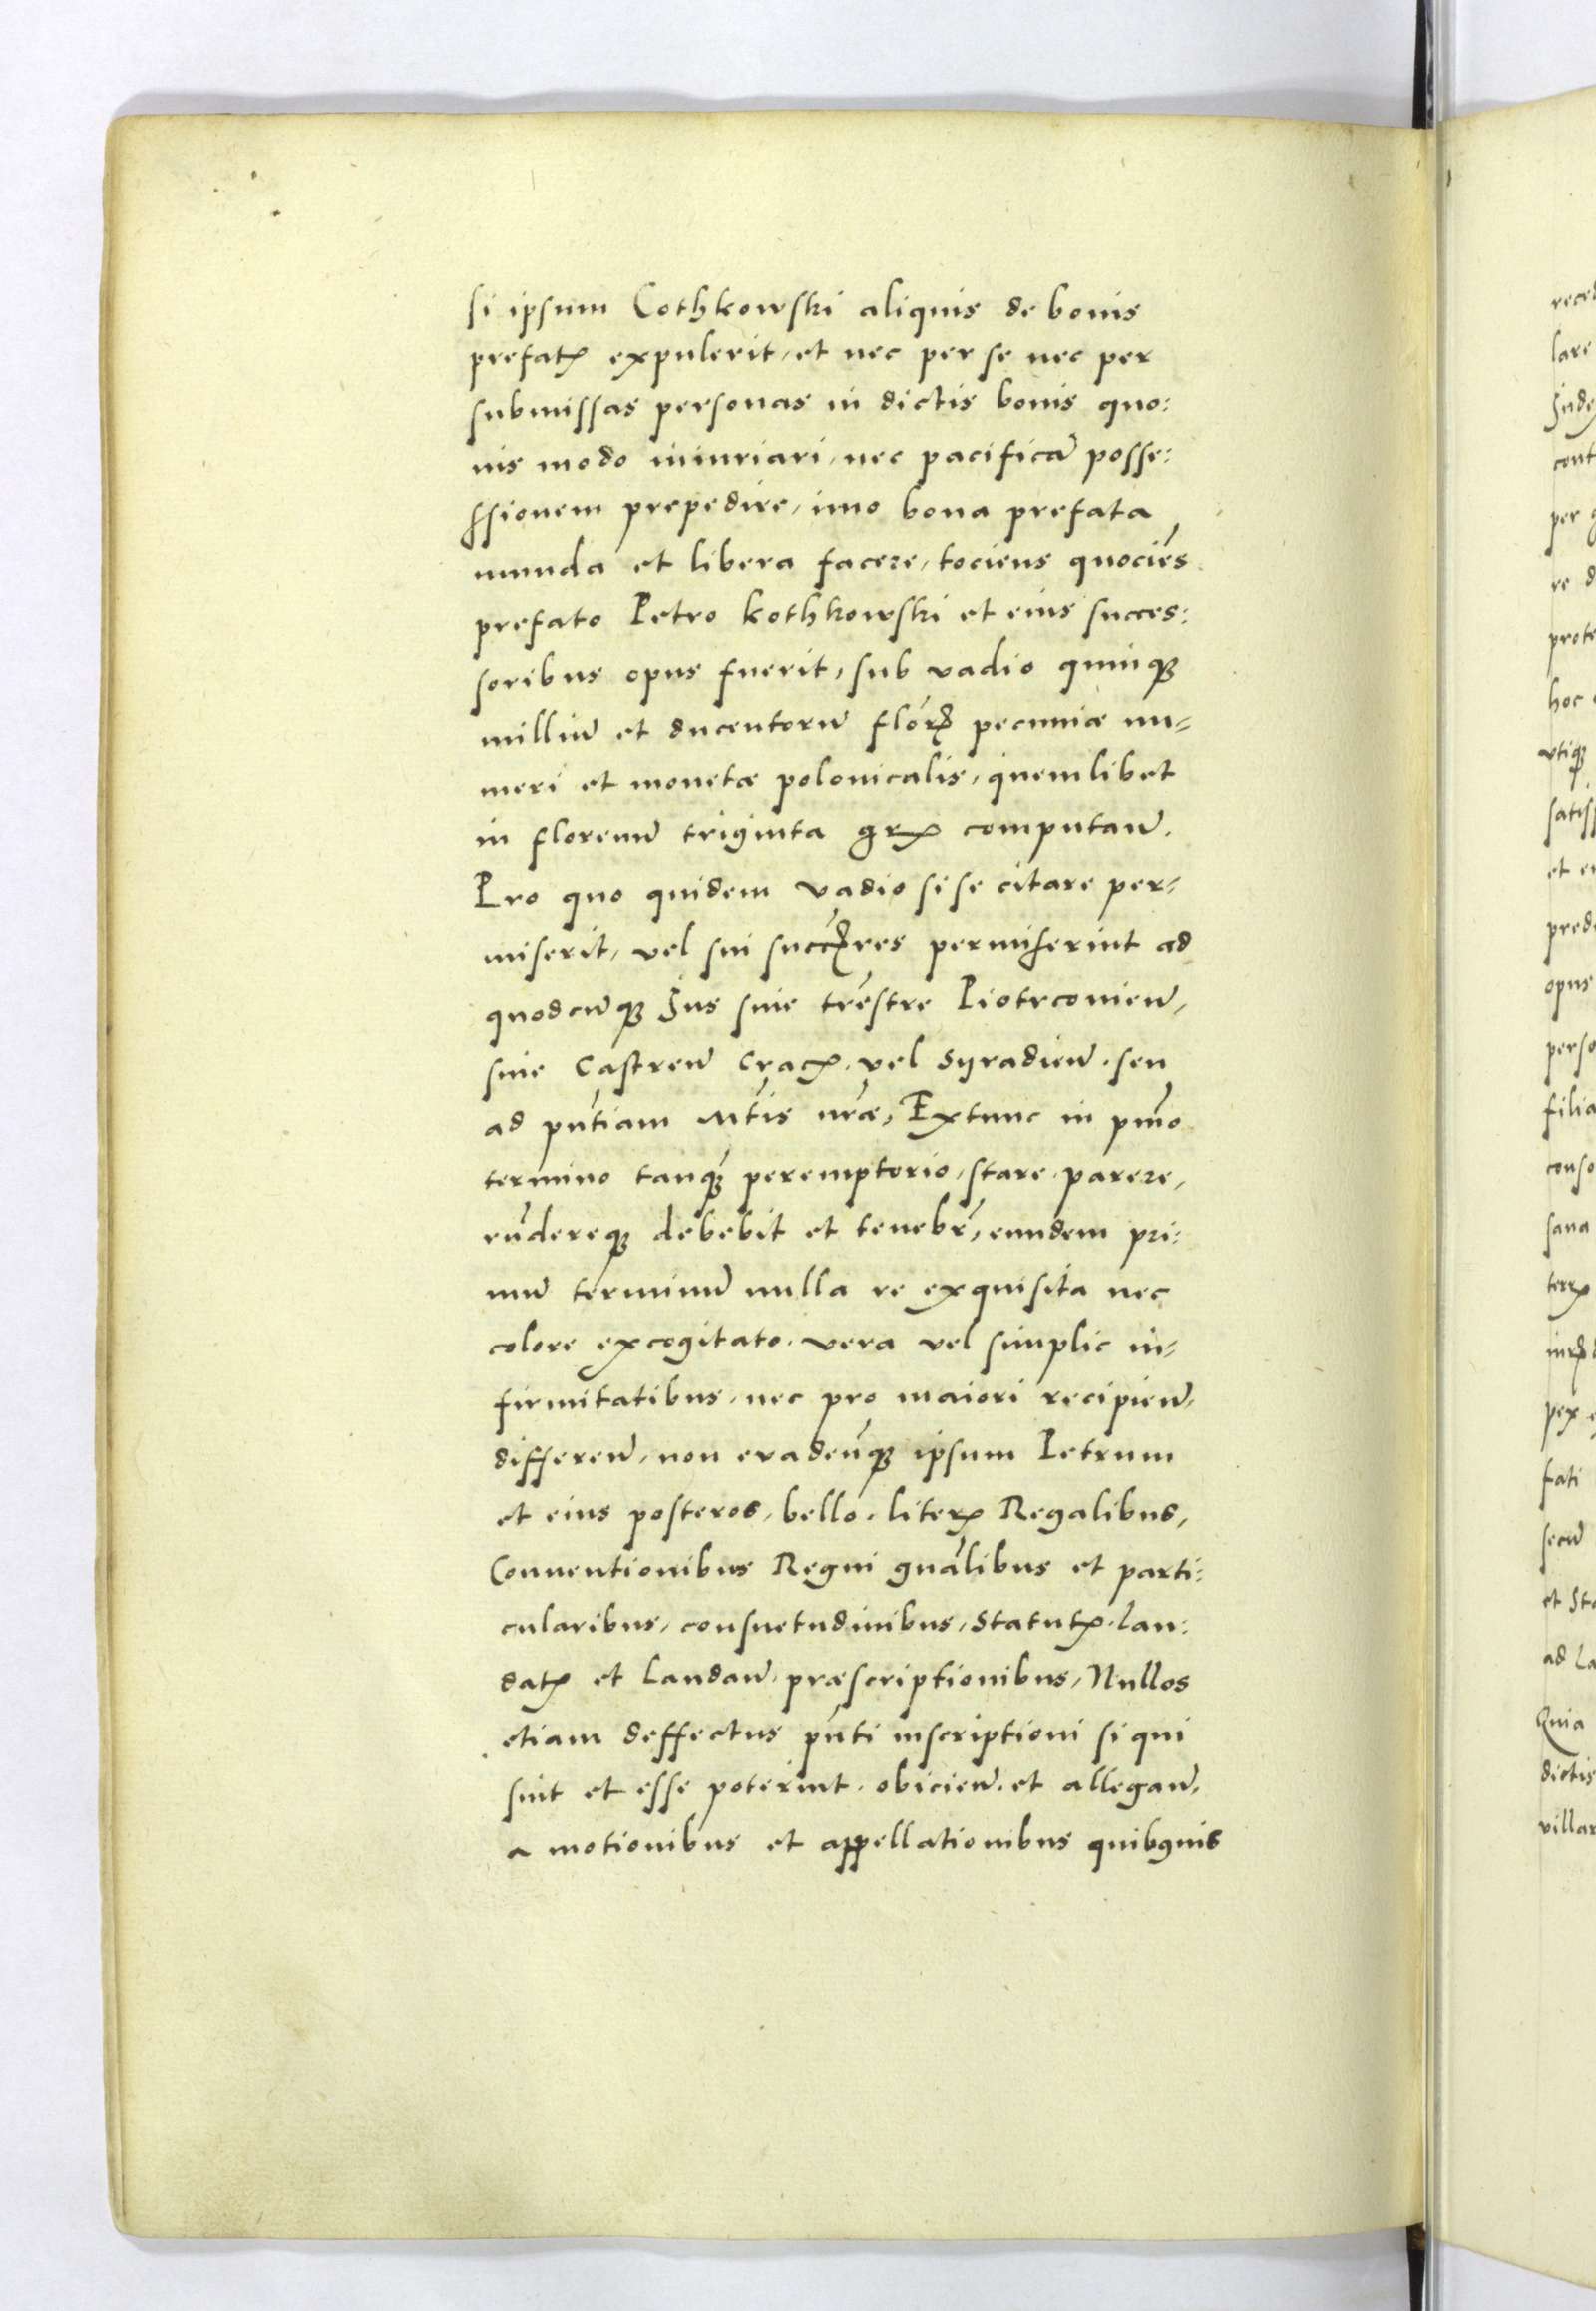 si ipsum Cothkowski aliquis de bonis
prefatꝭ expulerit, et nec per se nec per
submissas personas in dictis bonis quo:
uis modo iniuriari, nec pacificā posse:
ssionem prepedire, imo bona prefata
munda et libera facere, tociens quociēs
prefato Petro kothkowski et eius succes:
soribus opus fuerit, sub vadio quinqȝ
milliū et ducentorū florꝭ pecuniæ nu-
meri et monetæ polonicalis, quemlibet
in florenū triginta grꝭ computañ.
Pro quo quidem vadio si se citare per-
miserit, vel sui succꝭres permiserint ad
quodcūqȝ Jus siue trēstre Piotrconieñ,
siue Castreñ Cracꝭ. vel Syradieñ. seu
ad pñtiam Mtis nræ, Extunc in pmo
termino tanqȝ peremptorio, stare, parere,
rñdereqȝ debebit et tenebr, eundem pri:
mū terminū nulla re exquisita nec
colore excogitato. vera vel simplic in-
firmitatibus, nec pro maiori recipieñ.
differeñ, non euadeñqȝ ipsum Petrum
et eius posteros, bello. literꝭ Regalibus,
Conuentionibus Regni gnālibus et parti:
cularibus, consuetudinibus, Statutꝭ. lau:
datꝭ et laudañ. præscriptionibus, Nullos
etiam deffectus pñti inscriptioni si qui
sint et esse poterint. obicieñ. et allegañ.
a motionibus et appellationibus quibquis